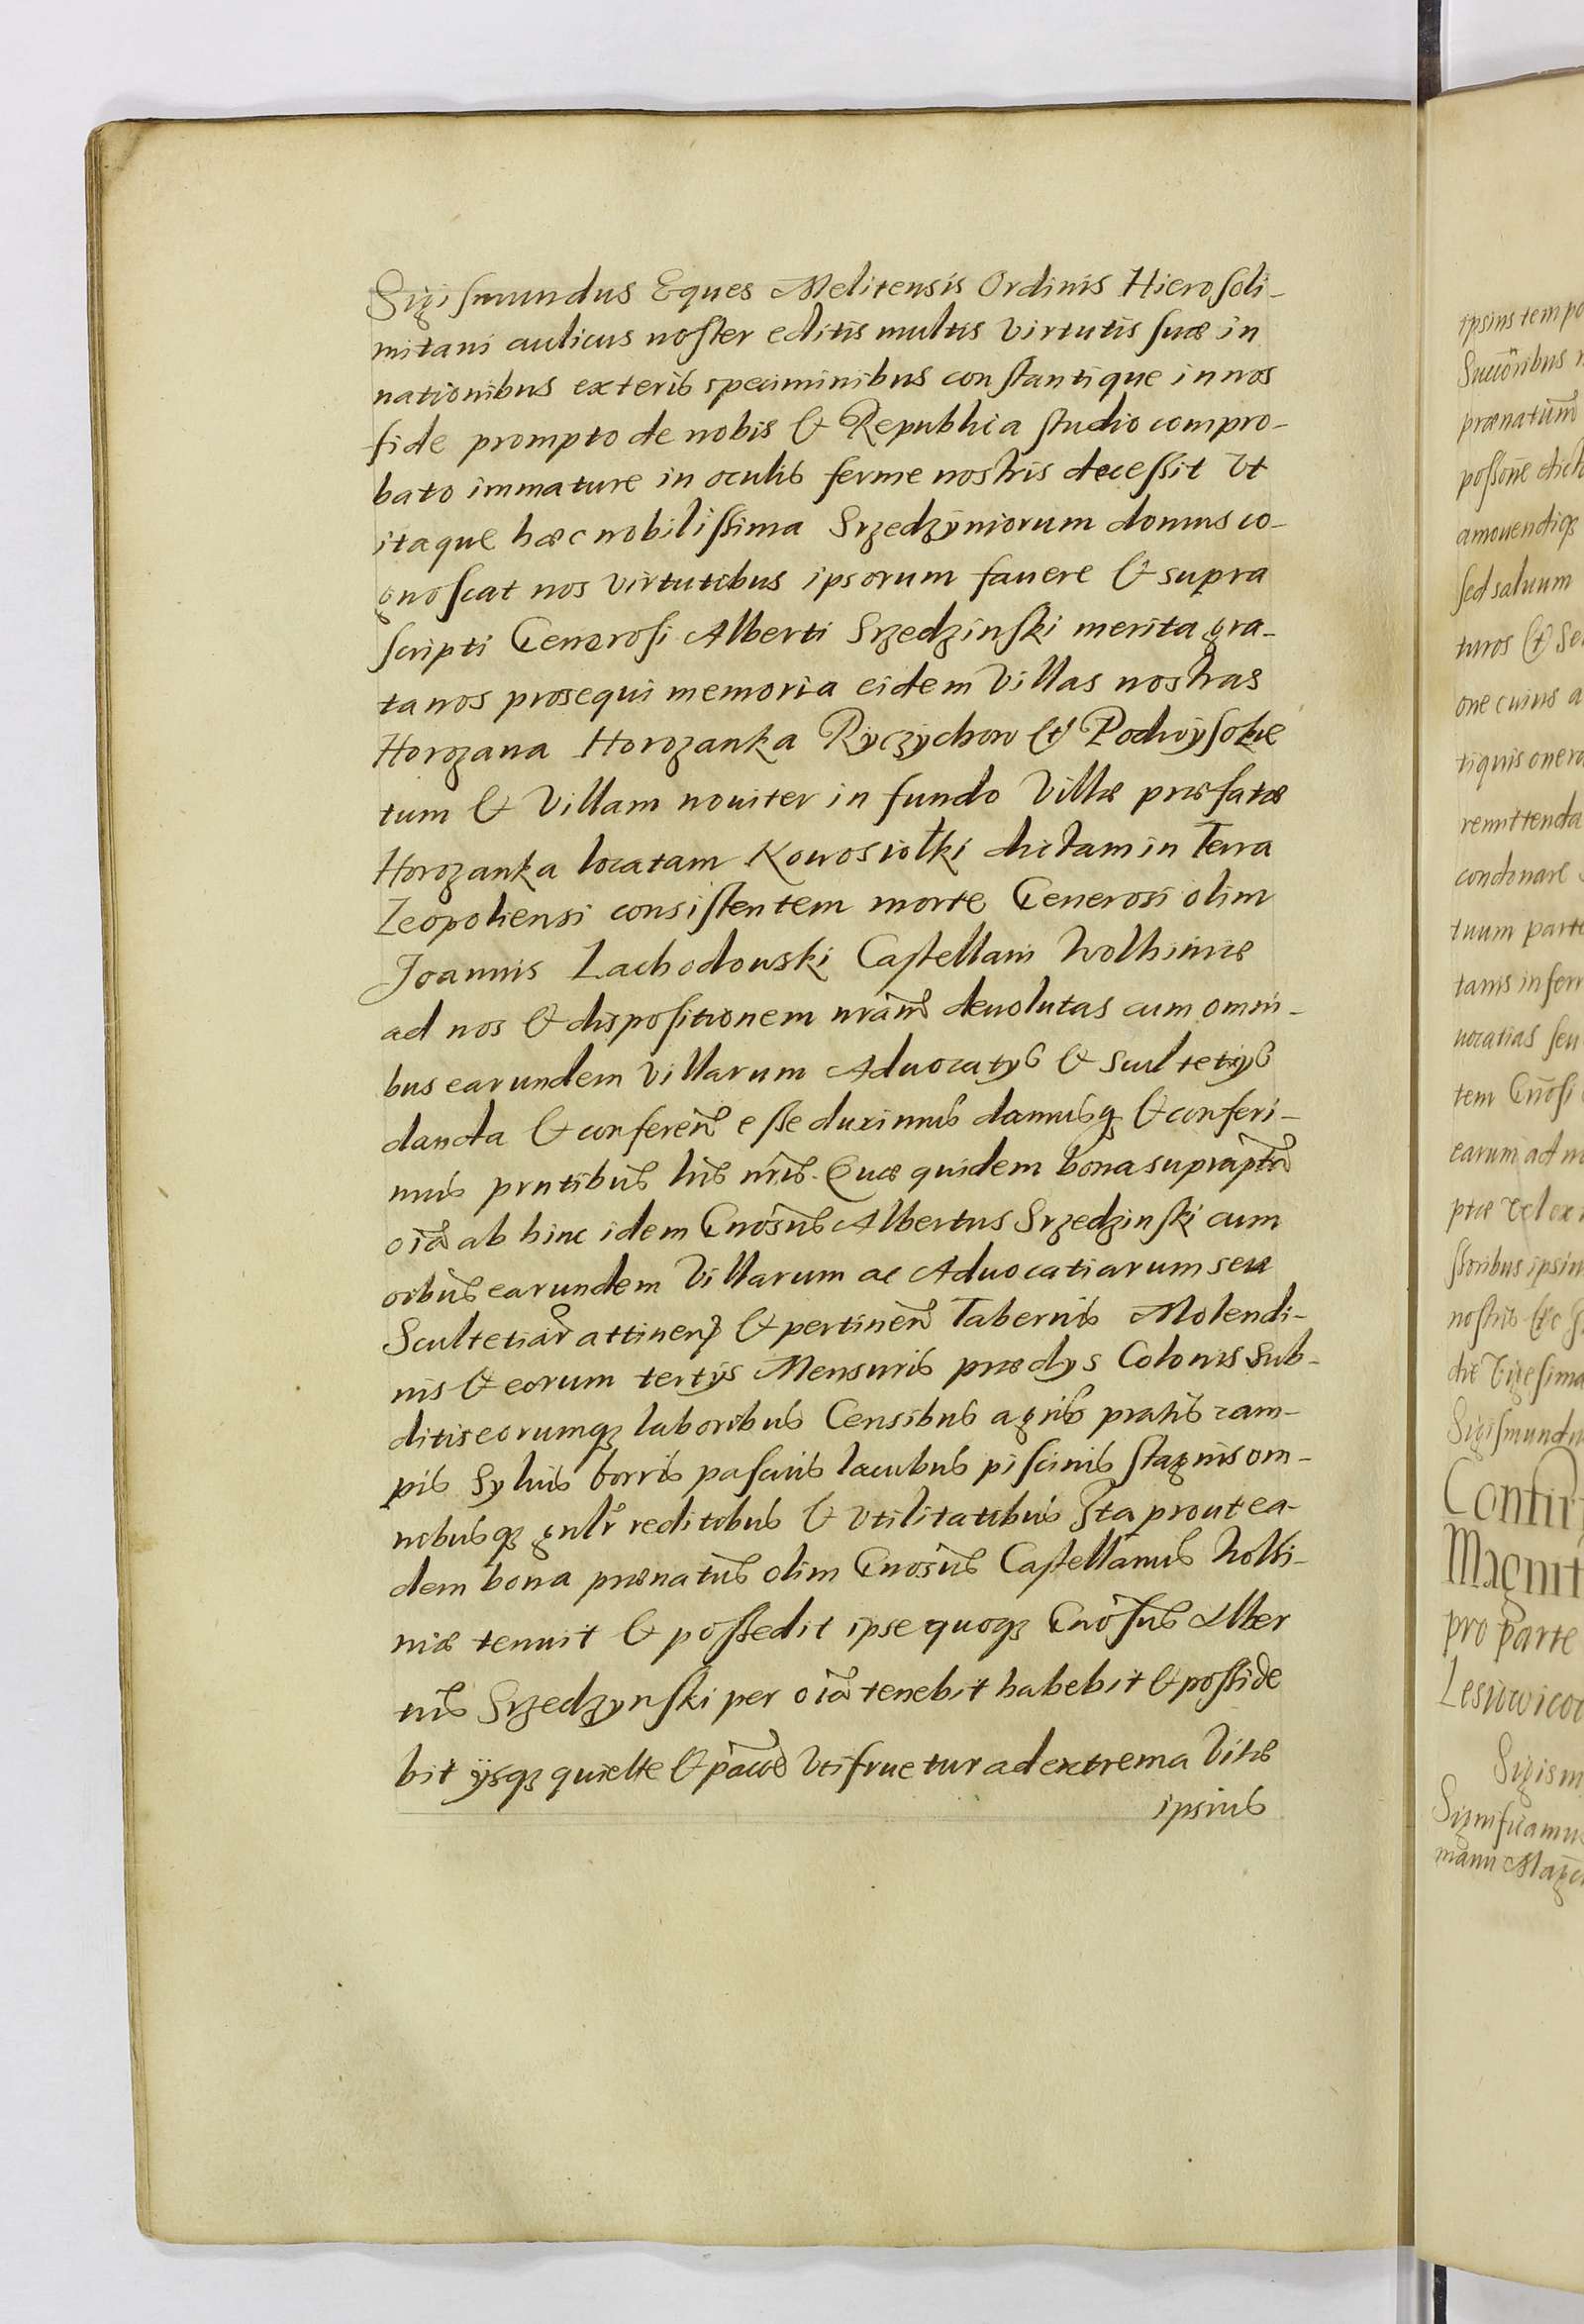 Sigismundus Eques Melitensis Ordinis Hierosoli-
mitani aulicus noster editis multis virtutis suæ in
nationibus exteris speciminibus constantique in nos
fide prompto de nobis & Republica studio compro-
bato immature in oculis ferme nostris decessit Vt
itaque hæc nobilissima Srzedzyniorum domus co-
gnoscat nos virtutibus ipsorum fauere & supra
scripti Generosi Alberti Srzedzinski merita gra-
ta nos prosequi memoria eidem Villas nostras
Horozana Horozanka Ryczychow & Podwysokie
tum & Villam nouiter in fundo Villæ præfatæ
Horozanka locatam Nowosiołki dictam in Terra
Leopoliensi consistentem morte Generosi olim
Joannis Lachodowski Castellani Wolhiniæ
ad nos & dispositionem nram deuolutas cum omni-
bus earundem Villarum Aduocatys & Scultetiys
danda & conferen esse duximus damusq & conferi-
mus pntibus lris nris. Quæ quidem bona suprapta
oia ab hinc idem Gnosus Albertus Srzedzinski cum
oibus earundem Villarum ac Aduocatiarum seu
Scultetiar attinen & pertinen Tabernis Molendi-
nis & eorum tertys Mensuris prædys Colonis Sub-
ditis eorumq laboribus Censibus agris pratis cam-
pis Syluis borris pascuis lacubus piscinis stagnis om-
nibusq gnlr reditibus & vtilitatibus Ita prout ea-
dem bona prænatus olim Gnosus Castellanus Wolhi-
niæ tenuit & possedit ipse quoq Gnosus Alber
tus Srzedzynski per oia tenebit habebit & posside
bit ysq quiete & pace vtifruetur ad extrema Vitæ
ipsius
ipsius tempo
prænatum
amouendiq
sed saluum
turos & Se
one cuius a
tiquis onera
remittenda
condonare
tuum parte
uocatias seu
tem Gnosi
earum ad no
ptæ vel ex
ssoribus ipsiu
nostris &c
die Vigesima
Sigismundu
Confir
Magnif
pro parte
Sigism
Significamus